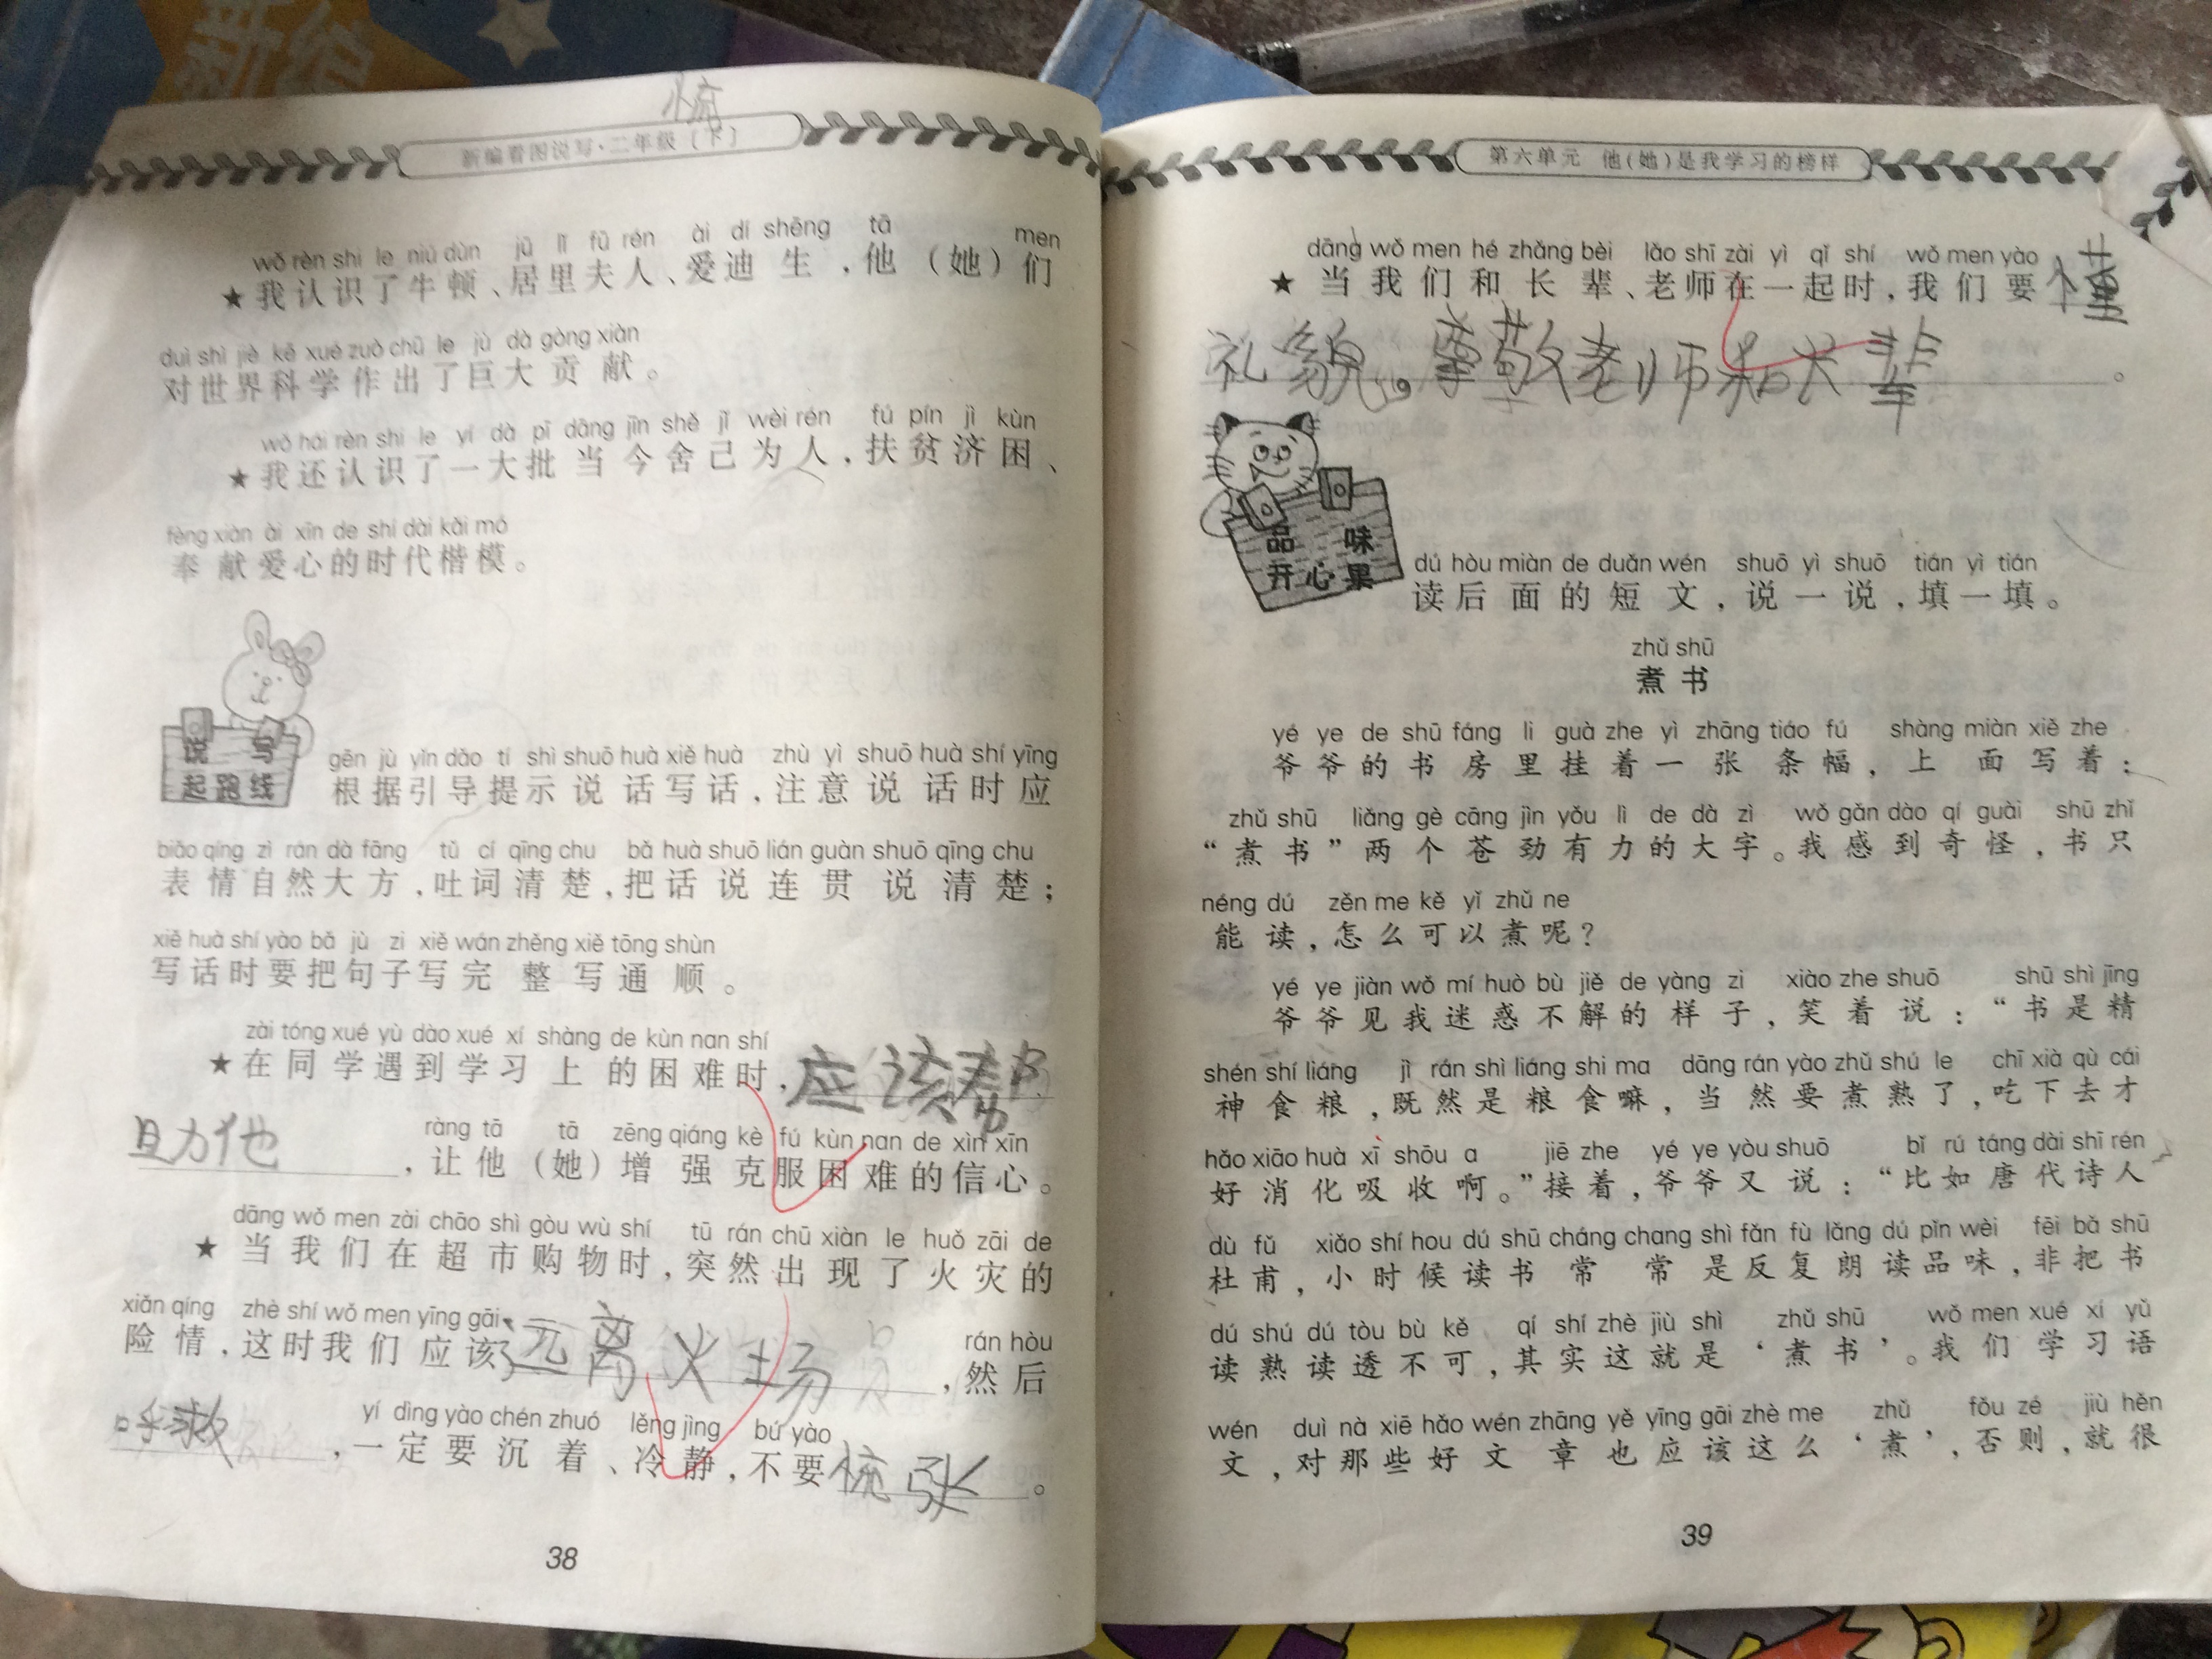 新编
慌
新编看图说写·二年级（下）
wǒ rèn shi le niú dùn jū lǐ fū rén ài dí shēng tā men
★我认识了牛顿、居里夫人、爱迪生，他（她）们
duì shì jiè kē xué zuò chū le jù dà gòng xiàn
对世界科学作出了巨大贡献。
wǒ hái rèn shi le yí dà pī dāng jīn shě jǐ wèi rén fú pín jì kùn
★我还认识了一大批当今舍己为人，扶贫济困、
fèng xiàn ài xīn de shí dài kǎi mó
奉献爱心的时代楷模。
说写
起跑线
gēn jù yǐn dǎo tí shì shuō huà xiě huà zhù yì shuō huà shí yīng
根据引导提示说话写话，注意说话时应
biǎo qíng zì rán dà fāng tǔ cí qīng chu bǎ huà shuō lián guàn shuō qīng chu
表情自然大方，吐词清楚，把话说连贯说清楚；
xiě huà shí yào bǎ jù zi xiě wán zhěng xiě tōng shùn
写话时要把句子写完整写通顺。
zài tóng xué yù dào xué xí shàng de kùn nan shí
★在同学遇到学习上的困难时，应该帮
ràng tā tā zēng qiáng kè fú kùn nan de xìn xīn
助他，让他（她）增强克服困难的信心。
dāng wǒ men zài chāo shì gòu wù shí tū rán chū xiàn le huǒ zāi de
★当我们在超市购物时，突然出现了火灾的
xiǎn qíng zhè shí wǒ men yīng gāi rán hòu
险情，这时我们应该远离火场，然后
yí dìng yào chén zhuó lěng jìng bú yào
呼救，一定要沉着、冷静，不要慌张。
38
第六单元 他（她）是我学习的榜样
dāng wǒ men hé zhǎng bèi lǎo shī zài yì qǐ shí wǒ men yào
★当我们和长辈、老师在一起时，我们要懂
礼貌。尊敬老师和长辈。
品味
开心果
dú hòu miàn de duǎn wén shuō yì shuō tián yì tián
读后面的短文，说一说，填一填。
zhǔ shū
煮书
yé ye de shū fáng li guà zhe yì zhāng tiáo fú shàng miàn xiě zhe
爷爷的书房里挂着一张条幅，上面写着：
zhǔ shū liǎng gè cāng jìn yǒu lì de dà zì wǒ gǎn dào qí guài shū zhǐ
“煮书”两个苍劲有力的大字。我感到奇怪，书只
néng dú zěn me kě yǐ zhǔ ne
能读，怎么可以煮呢？
yé ye jiàn wǒ mí huò bù jiě de yàng zi xiào zhe shuō shū shì jīng
爷爷见我迷惑不解的样子，笑着说：“书是精
shén shí liáng jì rán shì liáng shi ma dāng rán yào zhǔ shú le chī xià qù cái
神食粮，既然是粮食嘛，当然要煮熟了，吃下去才
hǎo xiāo huà xī shōu a jiē zhe yé ye yòu shuō bǐ rú táng dài shī rén
好消化吸收啊。”接着，爷爷又说：“比如唐代诗人
dù fǔ xiǎo shí hou dú shū cháng chang shì fǎn fù lǎng dú pǐn wèi fēi bǎ shū
杜甫，小时候读书常常是反复朗读品味，非把书
dú shú dú tòu bù kě qí shí zhè jiù shì zhǔ shū wǒ men xué xí yǔ
读熟读透不可，其实这就是‘煮书’。我们学习语
wén duì nà xiē hǎo wén zhāng yě yīng gāi zhè me zhǔ fǒu zé jiù hěn
文，对那些好文章也应该这么‘煮’，否则，就很
39